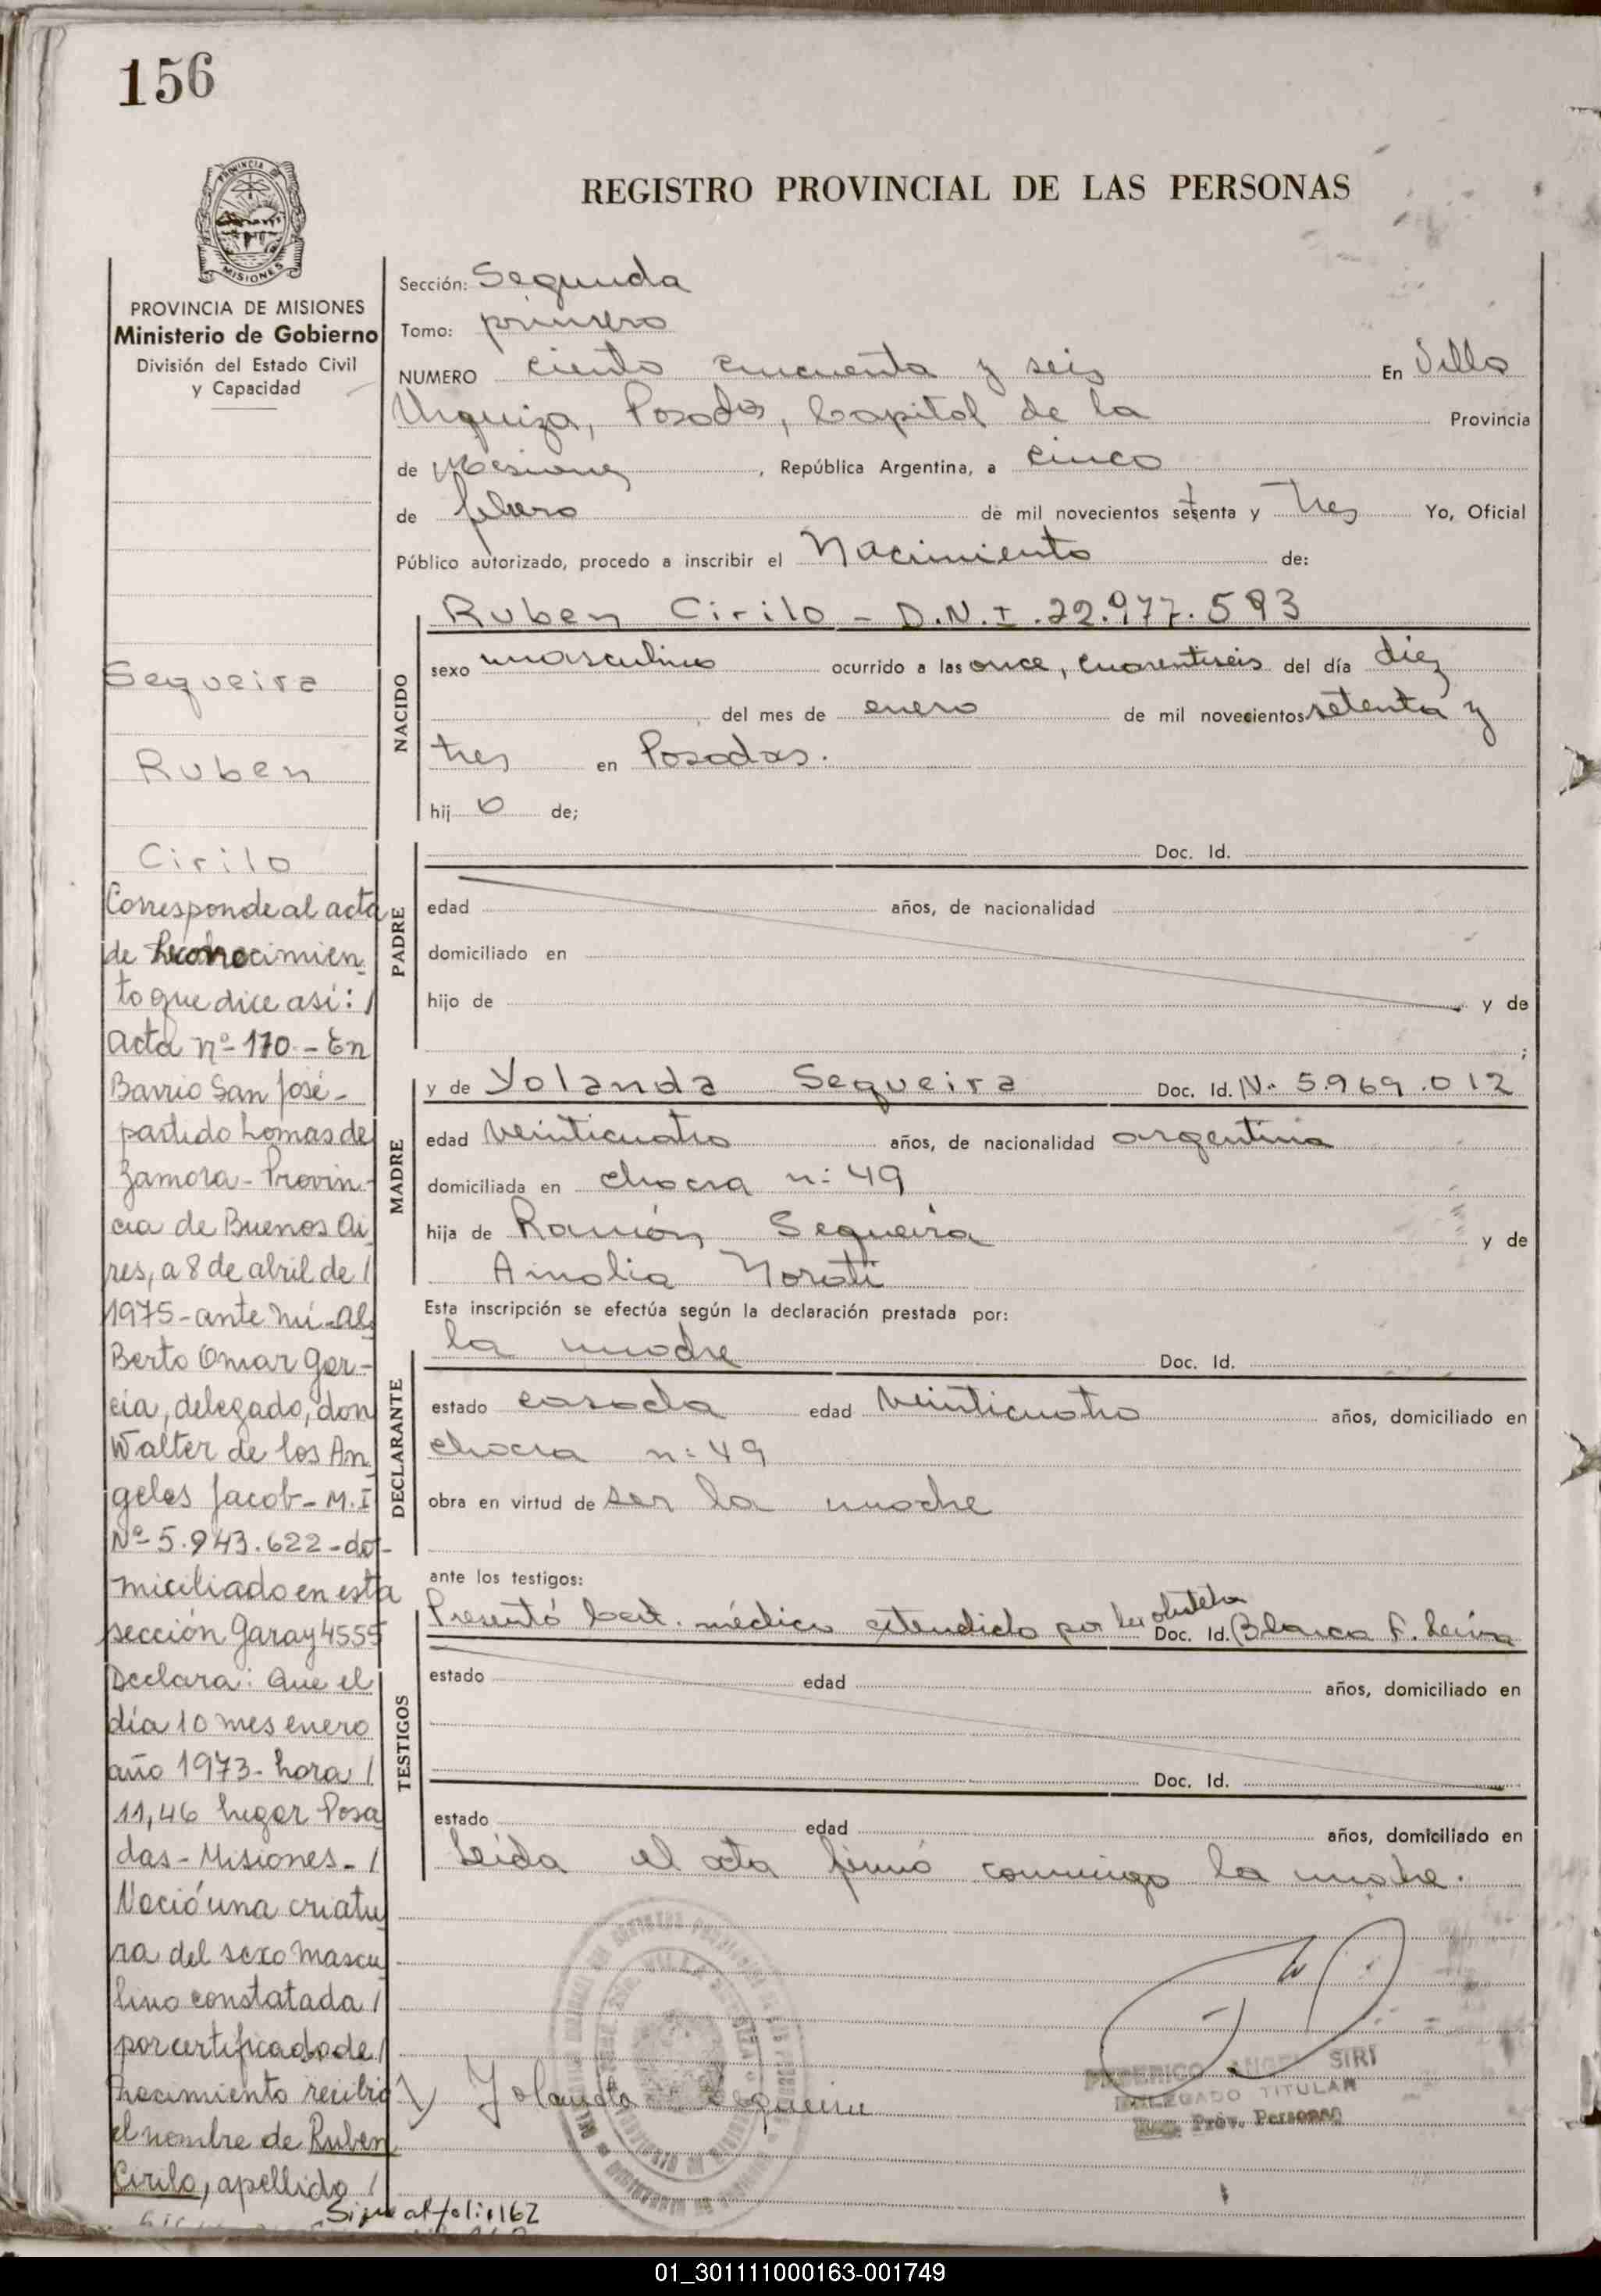 156
REGISTRO PROVINCIAL DE LAS PERSONAS
PROVINCIA DE
MISIONES
PROVINCIA DE MISIONES
Ministerio de Gobierno
División del Estado Civil
y Capacidad
Sección: Segunda
Tomo: primero
NUMERO ciento cincuenta y seis En Villa
Urquiza, Posadas, Capital de la Provincia
de Misiones, República Argentina, a cinco
de febrero de mil novecientos setenta y tres Yo, Oficial
Público autorizado, procedo a inscribir el Nacimiento de:
NACIDO
Ruben Cirilo - D.N.I. 22.977.593
sexo masculino ocurrido a las once, cuarentiseis del día diez
del mes de enero de mil novecientos setenta y
tres en Posadas.
hij o de;
PADRE
Doc. Id.
edad años, de nacionalidad
domiciliado en
hijo de y de
;
MADRE
y de Yolanda Sequeira Doc. Id. N. 5.969.012
edad veinticuatro años, de nacionalidad argentina
domiciliada en chacra n: 49
hija de Ramón Sequeira y de
Amalia
Esta inscripción se efectúa según la declaración prestada por:
DECLARANTE
la madre Doc. Id.
estado casada edad veinticuatro años, domiciliado en
chacra n: 49
obra en virtud de ser la madre
ante los testigos:
TESTIGOS
Presentó Cert. médico extendido por la obstetra Doc. Id. Blanca F. Leiva
estado edad años, domiciliado en
Doc. Id.
estado edad años, domiciliado en
Leida el acta firmó conmigo la madre.
Yolanda Sequeira
FEDERICO ANGEL SIRI
DELEGADO TITULAR
Reg. Prov. Personas
Sequeira
Ruben
Cirilo
Corresponde al acta
de Reconocimien
to que dice así: /
Acta nº 170 - En
Barrio San José -
partido Lomas de
Zamora - Provin-
cia de Buenos Ai
res, a 8 de abril de /
1975 - ante mí - Al
Berto Omar Gar-
cia, delegado, don
Walter de los An
geles Jacob - M.I
Nº 5.943.622 - do-
miciliado en esta
sección Garay 4555
Declara: Que el
día 10 mes enero
año 1973 - hora /
11,46 lugar Posa
das - Misiones - /
Nació una criatu
ra del sexo mascu
lino constatada /
por certificado de /
nacimiento recibió
el nombre de Ruben
Cirilo, apellido /
Sigue al folio 162
01_301111000163-001749